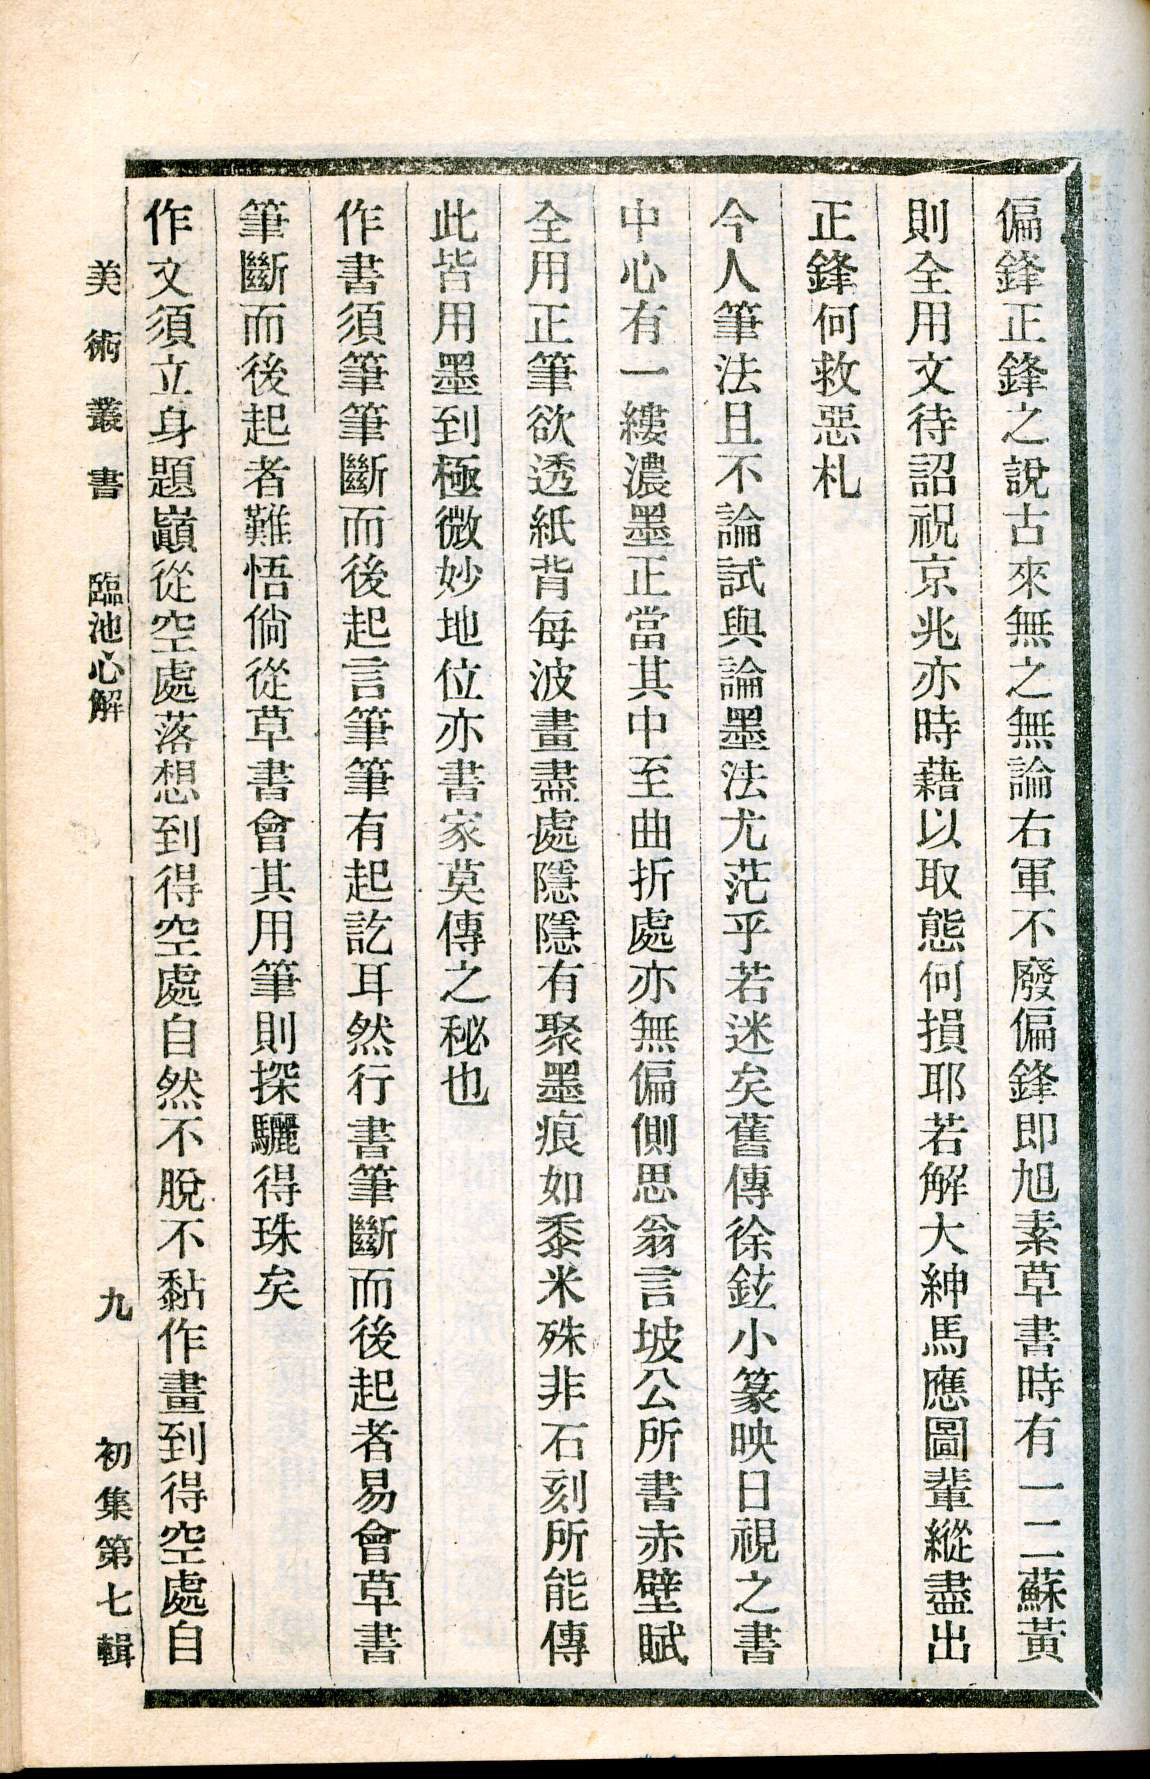 偏鋒正鋒之說古來無之無論右軍不廢偏鋒即旭素草書時有一二蘇黃
則全用文待詔祝京兆亦時藉以取態何損耶若解大紳馬應圖輩縱盡出
正鋒何救惡札
今人筆法且不論試與論墨法尤茫乎若迷矣舊傳徐鉉小篆映日視之書
中心有一縷濃墨正當其中至曲折處亦無偏側思翁言坡公所書赤壁賦
全用正筆欲透紙背每波畫盡處隱隱有聚墨痕如黍米殊非石刻所能傳
此皆用墨到極微妙地位亦書家莫傳之秘也
作書須筆筆斷而後起言筆筆有起訖耳然行書筆斷而後起者易會草書
筆斷而後起者難悟倘從草書會其用筆則探驪得珠矣
作文須立身題巔從空處落想到得空處自然不脫不黏作畫到得空處自
美術叢書 臨池心解 九 初集第七輯